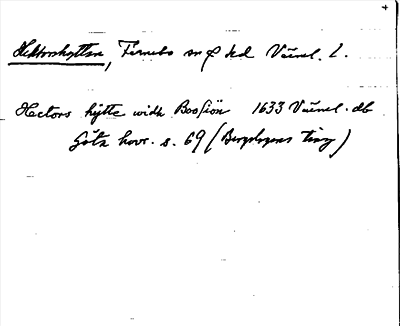 Hektorshyttan, Färnebo sn o hd Värml. L.
Hectors hÿtte widh Boosiön 1633 Värml. db
Göta hovr. s. 69 (Bergslagens ting)